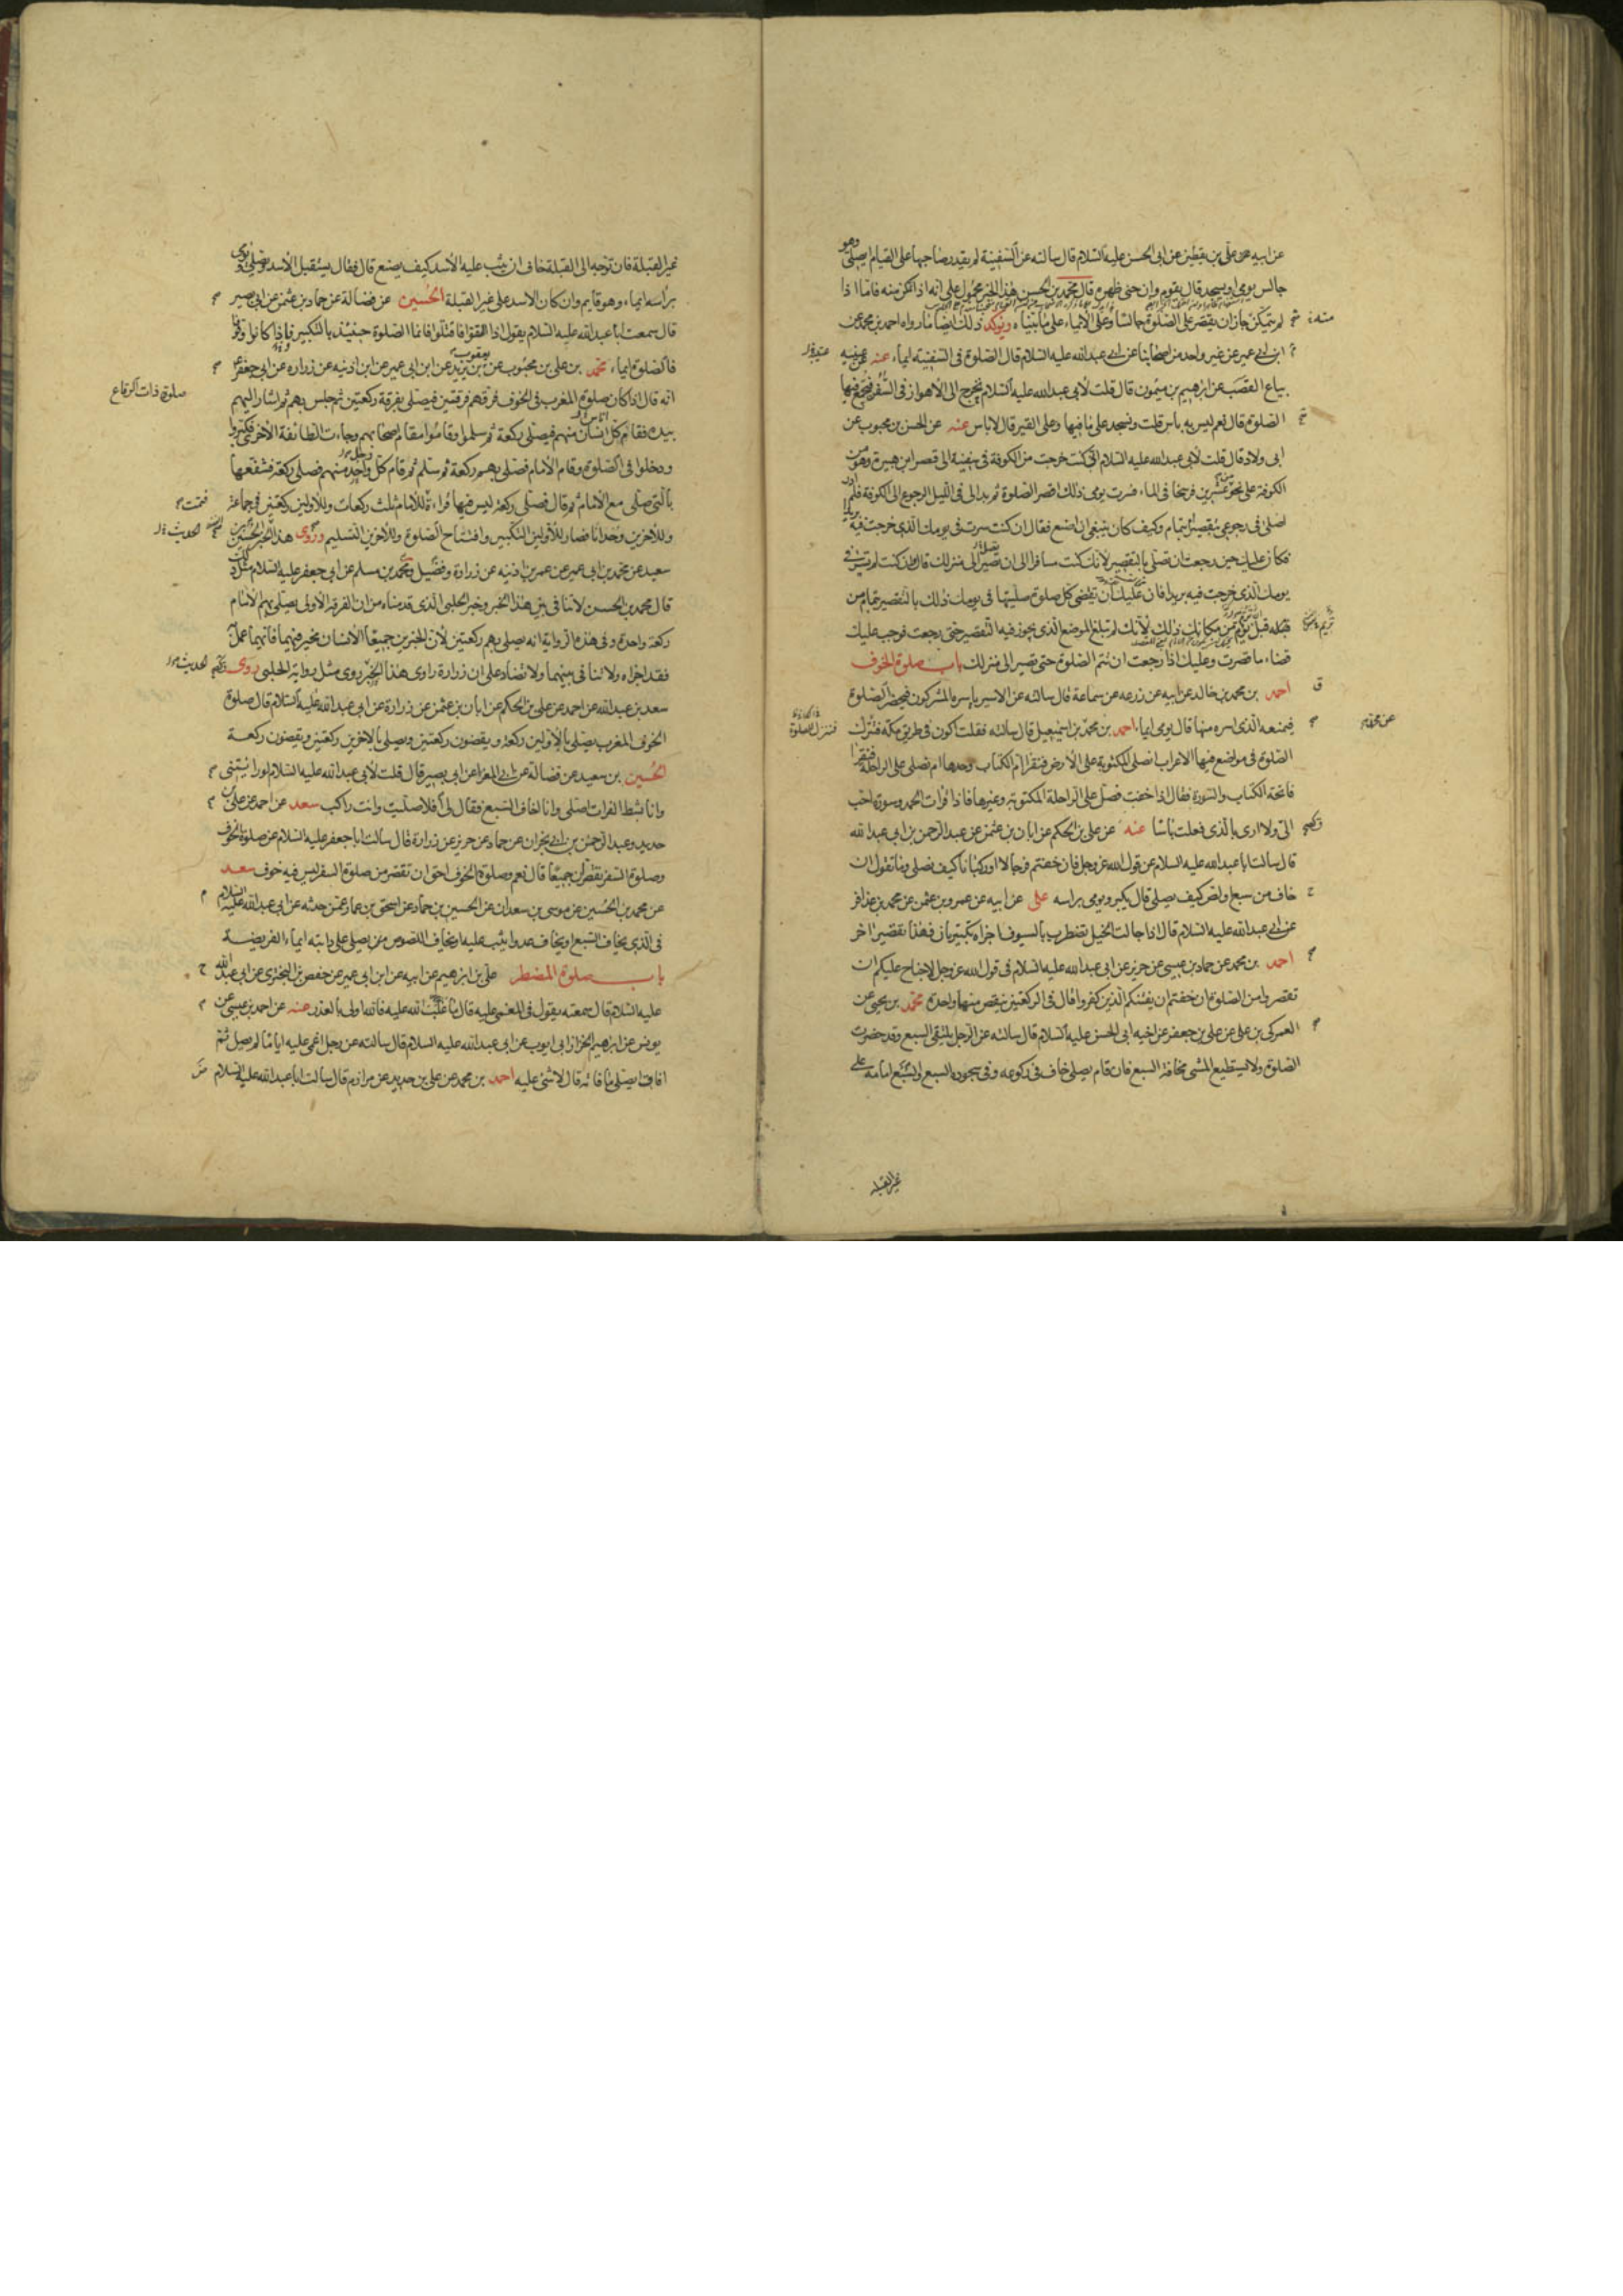 عن ابيه عن علي بن يقطين عن ابي الحسن عليه السلام قال سالته عن السفينة لم يقدر صاحبها على القيام ايصلي وهو
جالس يومي او يسجد قال يقوم وان حنى ظهره قال محمد بن الحسن هذا الخبر محمول على انه اذا تمكن منه فاما اذا
لم يتمكن جاز ان يقتصر على الصلوة جالسا وعلى الايماء على ما بيناه ويؤكد ذلك ايضا ما رواه احمد بن محمد عن
ابن ابي عمير عن غير واحد من اصحابنا عن ابي عبدالله عليه السلام قال الصلوة في السفينة ايماء عنه عن عيينه
بياع القصب عن ابرهيم بن ميمون قال قلت لابي عبدالله عليه السلام نخرج الى الاهواز في السفن فنجمع فيها
الصلوة قال نعم ليس به باس قلت ونسجد على ما فيها وعلى القير قال لا باس عنه عن الحسن بن محبوب عن
ابي ولاد قال قلت لابي عبدالله عليه السلام اني كنت خرجت من الكوفة في سفينة الى قصر ابن هبيرة وهو من
الكوفة على نحو عشرين فرسخا في الماء فسرت يومي ذلك اقصر الصلوة ثم بدا لي في الليل الرجوع الى الكوفة فلم ادر
اصلي في رجوعي بتقصير ام بتمام وكيف كان ينبغي ان اصنع فقال ان كنت سرت في يومك الذي خرجت فيه بريدا
فكان عليك حين رجعت ان تصلي بالتقصير لانك كنت مسافرا الى ان تصير الى منزلك قال وان كنت لم تسر في
يومك الذي خرجت فيه بريدا فان عليك ان تقضي كل صلوة صليتها في يومك ذلك بالتقصير بتمام من
قبل ان تؤم من مكانك ذلك لانك لم تبلغ الموضع الذي يجوز فيه التقصير حتى رجعت فوجب عليك
قضاء ما قصرت وعليك اذا رجعت ان تتم الصلوة حتى تصير الى منزلك باب صلوة الخوف
احمد بن محمد بن خالد عن ابيه عن زرعه عن سماعة قال سالته عن الاسير ياسره المشركون فيحضر الصلوة
فيمنعه الذي اسره منها قال يومي ايماء احمد بن محمد بن اسمعيل قال سالته فقلت اكون في طريق مكة فننزل
الصلوة في مواضع فيها الاعراب انصلي المكتوبة على الارض فنقرا ام الكتاب وحدها ام نصلي على الراحلة فنقرا
فاتحة الكتاب والسورة فقال اذا خفت فصل على الراحلة المكتوبة وغيرها فاذا قرات الحمد وسورة احب
الي ولا ارى بالذي فعلت باسا عنه عن علي بن الحكم عن ابان بن عثمن عن عبدالرحمن بن ابي عبدالله
قال سالت ابا عبدالله عليه السلام عن قول الله عز وجل فان خفتم فرجالا او ركبانا كيف نصلي وما تقول ان
خاف من سبع او لص كيف يصلي قال يكبر ويومي براسه علي عن ابيه عن عمرو بن عثمن عن محمد بن عذافر
عن ابي عبدالله عليه السلام قال اذا جالت الخيل تضطرب بالسيوف اجزاه تكبيرتان فهذا تقصير اخر
احمد بن محمد عن حماد بن عيسى عن حريز عن ابي عبدالله عليه السلام في قول الله عز وجل لا جناح عليكم ان
تقصروا من الصلوة ان خفتم ان يفتنكم الذين كفروا قال في الركعتين ينقص منها واحدة محمد بن يحيى عن
العمركي بن علي عن علي بن جعفر عن اخيه ابي الحسن عليه السلام قال سالته عن الرجل يلتقي السبع وقد حضرت
الصلوة ولا يستطيع المشي مخافة السبع فان قام يصلي خاف في ركوعه وفي سجوده السبع والسبع امامه على
غير القبله
غير القبلة فان توجه الى القبلة خاف ان يثب عليه الاسد كيف يصنع قال فقال يستقبل الاسد ويصلي ويومي
براسه ايماء وهو قايم وان كان الاسد على غير القبلة الحسين عن فضالة عن حماد بن عثمن عن ابي بصير
قال سمعت ابا عبدالله عليه السلام يقول اذا التقوا فاقتتلوا فانما الصلوة حينئذ بالتكبير فاذا كانوا وقوفا
فالصلوة ايماء محمد بن علي بن محبوب عن يعقوب بن يزيد عن ابن ابي عمير عن ابن اذينه عن زراره عن ابي جعفر
صلوة ذات الرقاع
انه قال اذا كان صلوة المغرب في الخوف فرقهم فرقتين فيصلي بفرقة ركعتين ثم جلس بهم ثم اشار اليهم
بيده فقام كل انسان منهم فيصلي ركعة ثم سلموا وقاموا مقام اصحابهم وجاءت الطائفة الاخرى فكبروا
ودخلوا في الصلوة وقام الامام فصلى بهم ركعة ثم سلم ثم قام كل واحد منهم فصلى ركعة فشفعها
بالتي صلى مع الامام ثم قال فصلى ركعة ليس فيها قراءة للامام ثلث ركعات وللاولين ركعتين في جماعة
وللاخرين وحدانا فصار للاولين التكبير وافتتاح الصلوة وللاخرين التسليم وروى هذا الخبر الحسين بن
سعيد عن محمد بن ابي عمير عن عمر بن اذينه عن زرارة وفضيل ومحمد بن مسلم عن ابي جعفر عليه السلام مثل ذلك
قال محمد بن الحسن لا تنافي بين هذا الخبر وخبر الحلبي الذي قدمناه من ان الفرقة الاولى يصلي بهم الامام
ركعة واحدة وفي هذه الرواية انه يصلي بهم ركعتين لان الخبرين جميعا الانسان مخير فيهما فايهما عمل
فقد اجزاه ولا تنافي بينهما ولا تضاد على ان زرارة راوي هذا الخبر روى مثل رواية الحلبي روى
سعد بن عبدالله عن احمد عن علي بن الحكم عن ابان بن عثمن عن زرارة عن ابي عبدالله عليه السلام قال صلوة
الخوف المغرب يصلي بالاولين ركعة ويقضون ركعتين ويصلي بالاخرين ركعتين ويقضون ركعة
الحسين بن سعيد عن فضالة عن ابي المغرا عن ابي بصير قال قلت لابي عبدالله عليه السلام لو رايتني
وانا بشط الفرات اصلي وانا اخاف السبع فقال لي افلا صليت وانت راكب سعد عن احمد عن علي بن
حديد وعبدالرحمن بن ابي نجران عن حماد عن حريز عن زرارة قال سالت ابا جعفر عليه السلام عن صلوة الخوف
وصلوة السفر تقصران جميعا قال نعم وصلوة الخوف احق ان تقصر من صلوة السفر ليس فيه خوف سعد
عن محمد بن الحسين عن موسى بن سعدان عن الحسين بن حماد عن اسحق بن عمار عمن حدثه عن ابي عبدالله عليه السلام
في الذي يخاف السبع او يخاف عدوا يثب عليه او يخاف اللصوص من يصلي على دابته ايماء الفريضة
باب صلوة المضطر علي بن ابرهيم عن ابيه عن ابن ابي عمير عن حفص بن البختري عن ابي عبدالله
عليه السلام قال سمعته يقول في المغمى عليه قال ما غلب الله عليه فالله اولى بالعذر عنه عن احمد بن عيسى عن
يونس عن ابرهيم الخزاز ابي ايوب عن ابي عبدالله عليه السلام قال سالته عن رجل اغمي عليه اياما لم يصل ثم
افاق ايصلي ما فاته قال لا شئ عليه احمد بن محمد عن علي بن حديد عن مرازم قال سالت ابا عبدالله عليه السلام